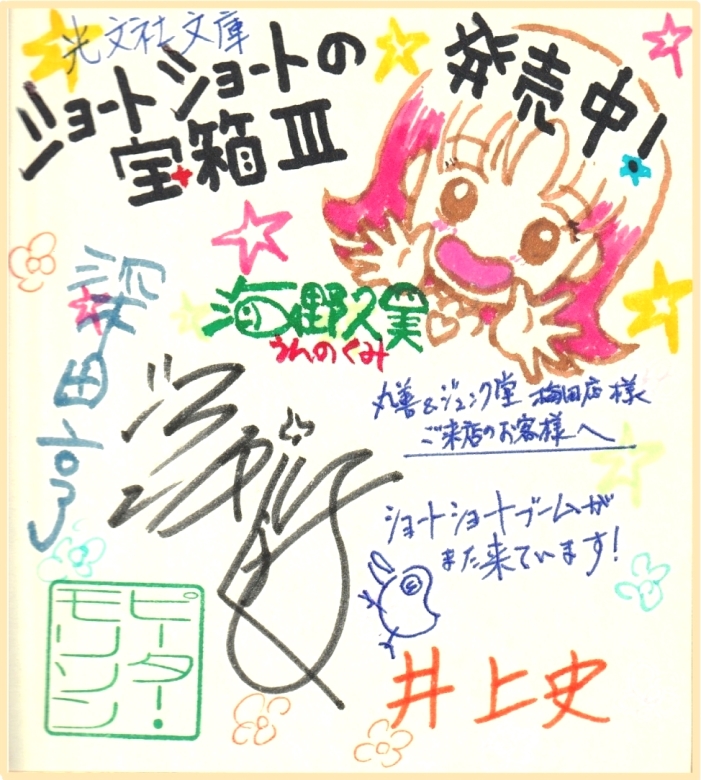 光文社文庫
ショートショートの
宝箱Ⅲ
発売中!
海野久実
うんのくみ
深田亨
丸善&ジュンク堂 梅田店様
ご来店のお客様へ
ショートショートブームが
また来ています!
井上史
ピーター・
モリソン